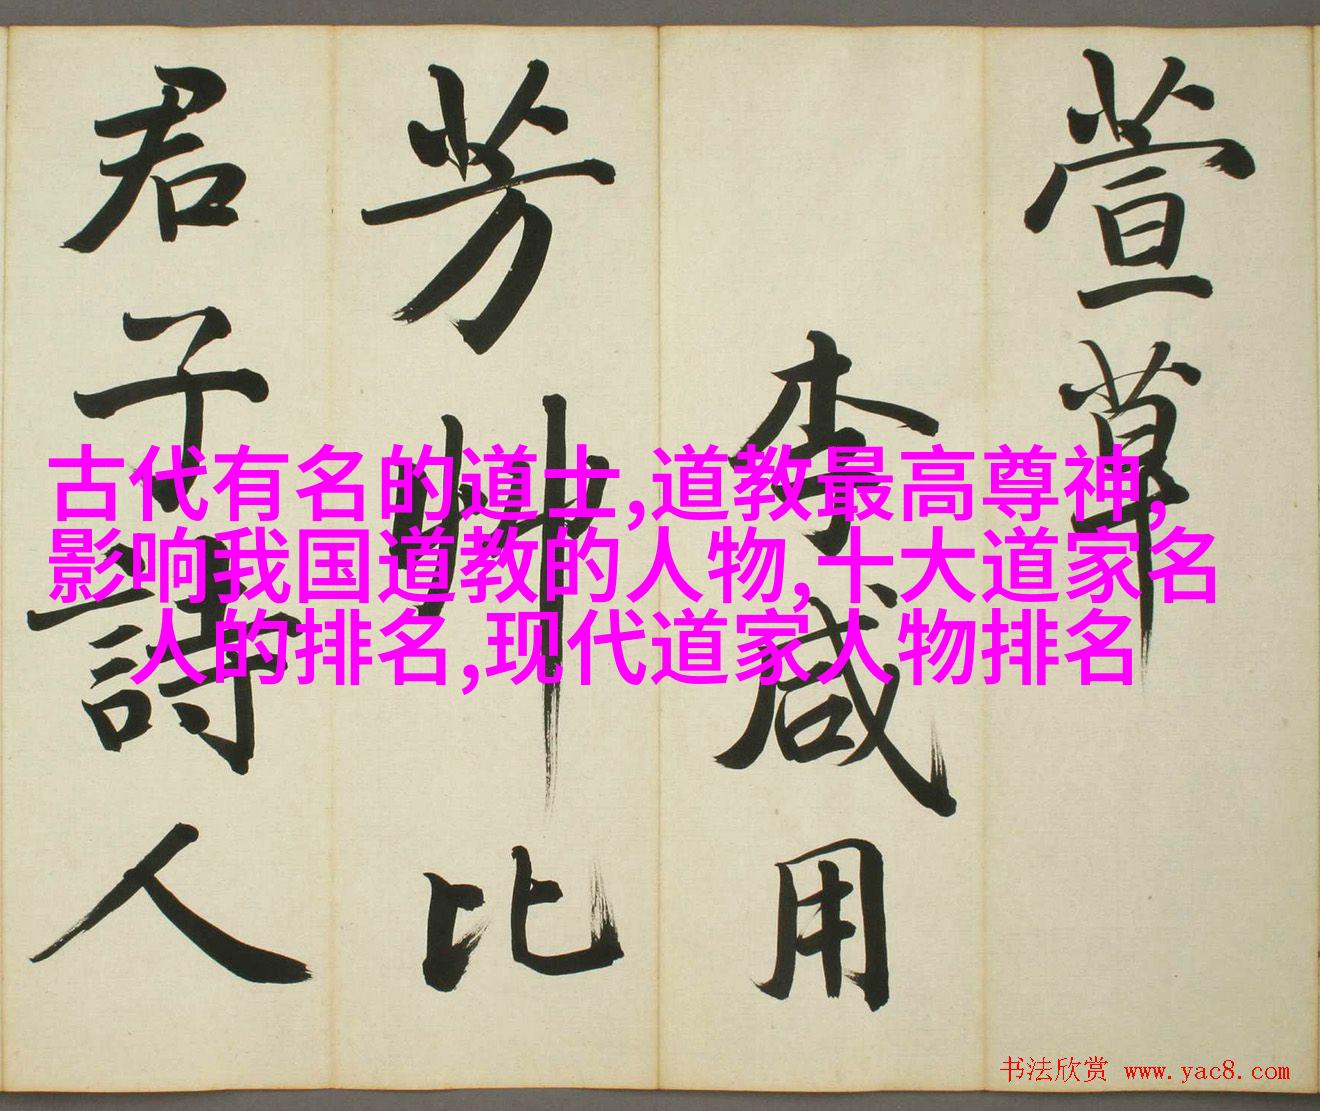 萱草
李咸用
芳艸比
君子詩人
古代有名的道士,道教最高尊神,
影响我国道教的人物,十大道家名
人的排名,现代道家人物排名
书法欣赏 www.yac8.com